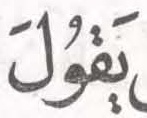 يَقُولَ